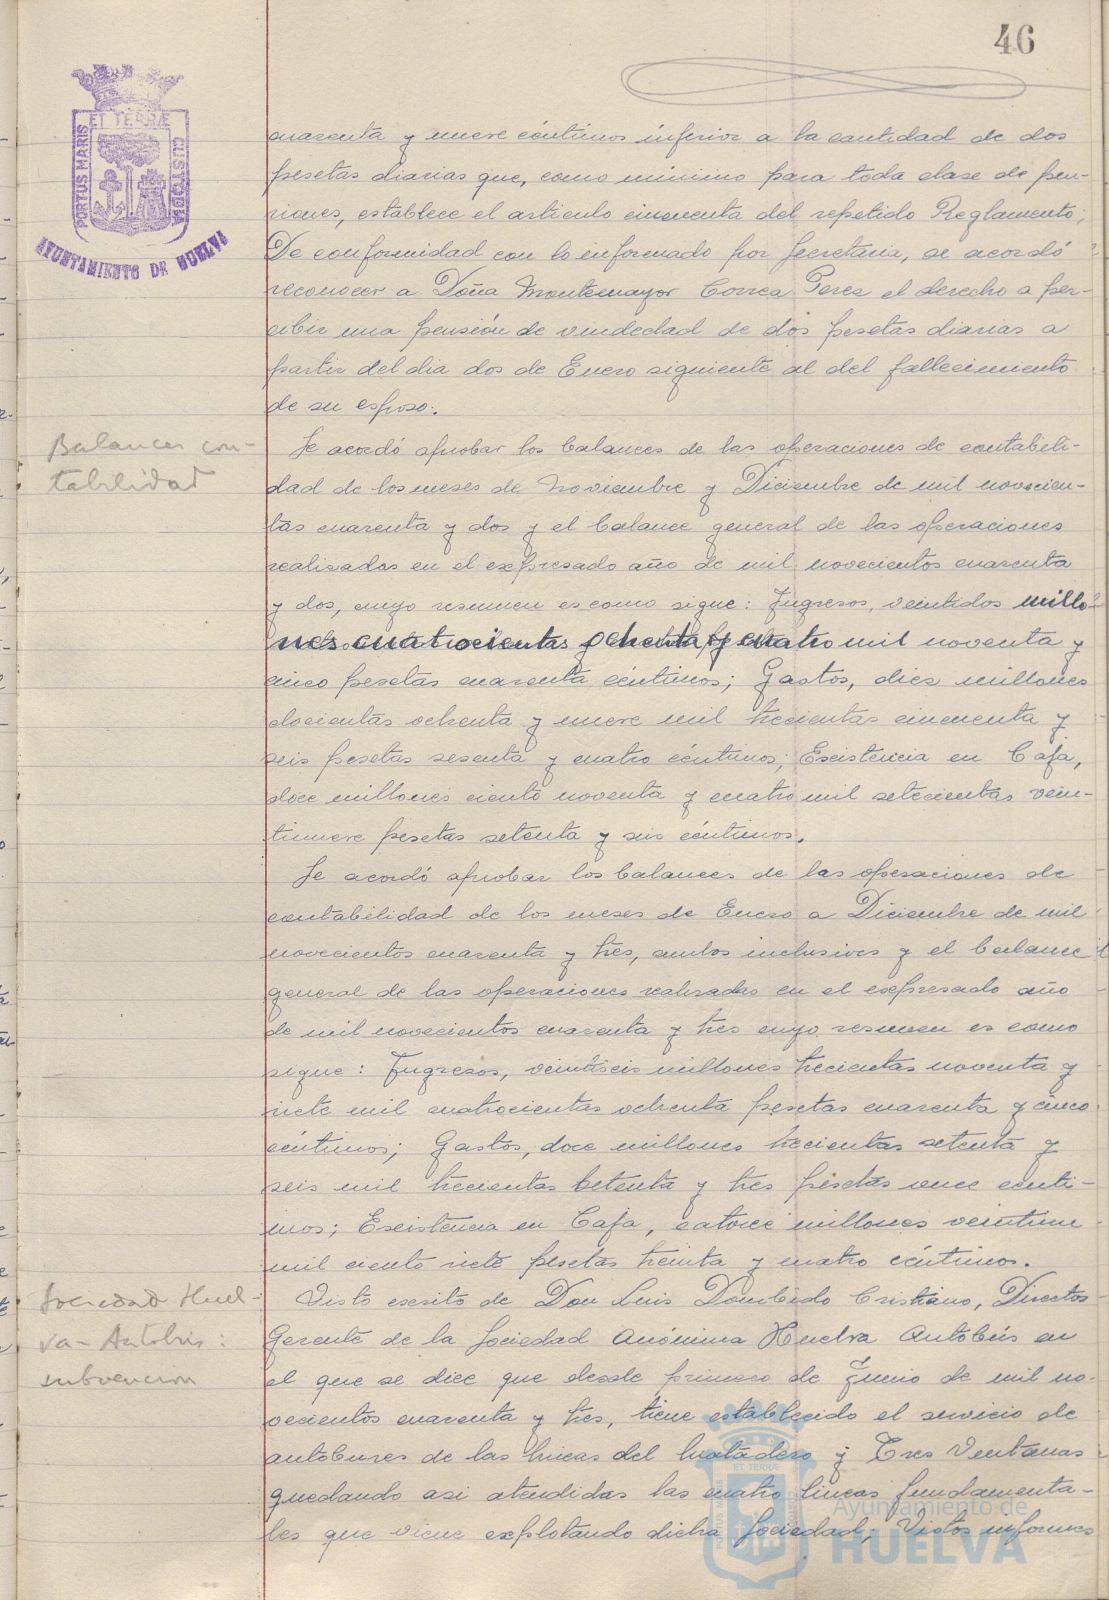 46
ET TERRÆ
PORTUS MARIS
CUSTODIA
AYUNTAMIENTO DE HUELVA
cuarenta y nueve céntimos inferior a la cantidad de dos
pesetas diarias que, como mínimo para toda clase de pen-
siones, establece el artículo cincuenta del repetido Reglamento;
De conformidad con lo informado por Secretaría, se acordó
reconocer a Doña Montemayor Correa Perez el derecho a per-
cibir una pensión de viudedad de dos pesetas diarias a
partir del dia dos de Enero siguiente al del fallecimiento
de su esposo.
Balances con-
tabilidad
Se acordó aprobar los balances de las operaciones de contabili-
dad de los meses de Noviembre y Diciembre de mil novecien-
tos cuarenta y dos y el balance general de las operaciones
realizadas en el expresado año de mil novecientos cuarenta
y dos, cuyo resumen es como sigue: Ingresos, veintidos millo-
nes cuatrocientas ochenta y cuatro mil noventa y
cinco pesetas cuarenta céntimos; Gastos, diez millones
docientas ochenta y nueve mil trecientas cincuenta y
seis pesetas sesenta y cuatro céntimos; Existencia en Caja,
doce millones ciento noventa y cuatro mil setecientas vein-
tinueve pesetas setenta y seis céntimos.
Se acordó aprobar los balances de las operaciones de
contabilidad de los meses de Enero a Diciembre de mil
novecientos cuarenta y tres, ambos inclusives y el balance
general de las operaciones realizadas en el expresado año
de mil novecientos cuarenta y tres cuyo resumen es como
sigue: Ingresos, veintiseis millones trecientas noventa y
siete mil cuatrocientas ochenta pesetas cuarenta y cinco
céntimos; Gastos, doce millones trecientas setenta y
seis mil trecientas setenta y tres pesetas once cénti-
mos; Existencia en Caja, catorce millones veintiun
mil ciento siete pesetas treinta y cuatro céntimos.
Sociedad Huel-
va-Autobus:
subvencion
Visto escrito de Don Luis Dombido Cristiano, Director
Gerente de la Sociedad Anónima Huelva Autobús en
el que se dice que desde primero de Junio de mil no-
vecientos cuarenta y tres, tiene establecido el servicio de
autobuses de las lineas del Matadero y Tres Ventanas
quedando asi atendidas las cuatro lineas fundamenta-
les que viene explotando dicha Sociedad; Vistos informes
Ayuntamiento de
HUELVA